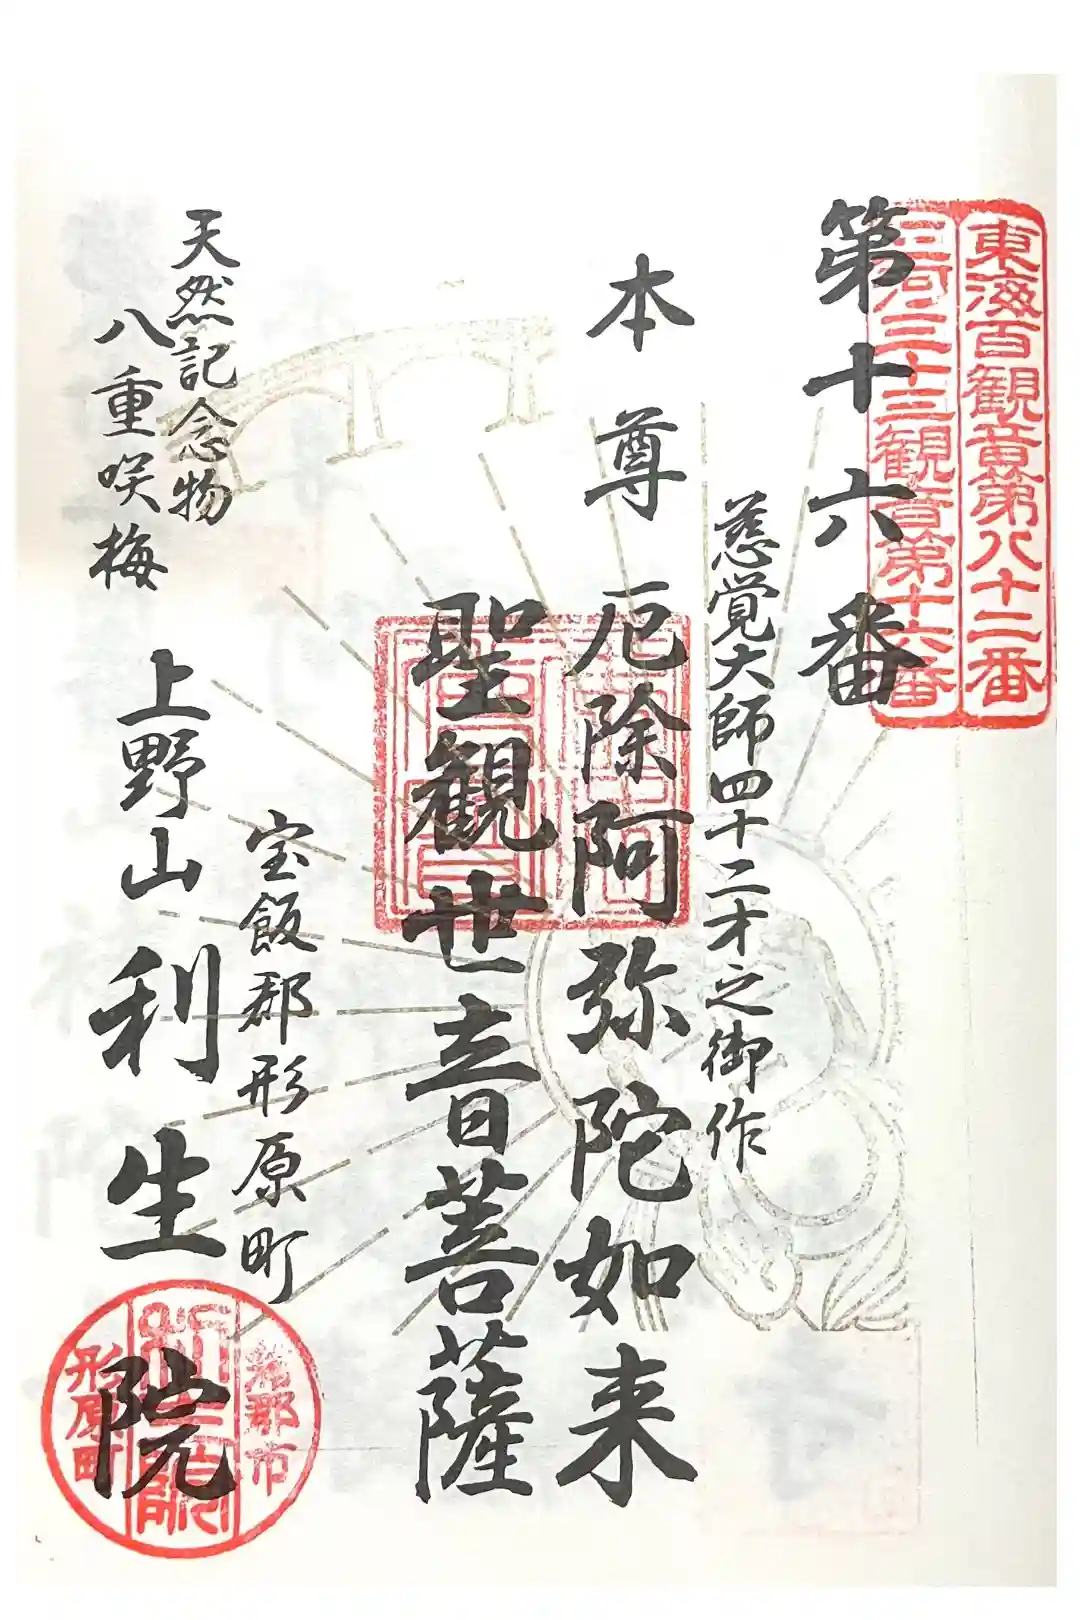 東海百観音第八十二番
三河三十三観音第十六番
第十六番
慈覚大師四十二才之御作
本尊 厄除阿弥陀如来
聖観世音菩薩
宝飯郡形原町
天然記念物
八重咲梅
上野山 利生院
蒲郡市
形原町